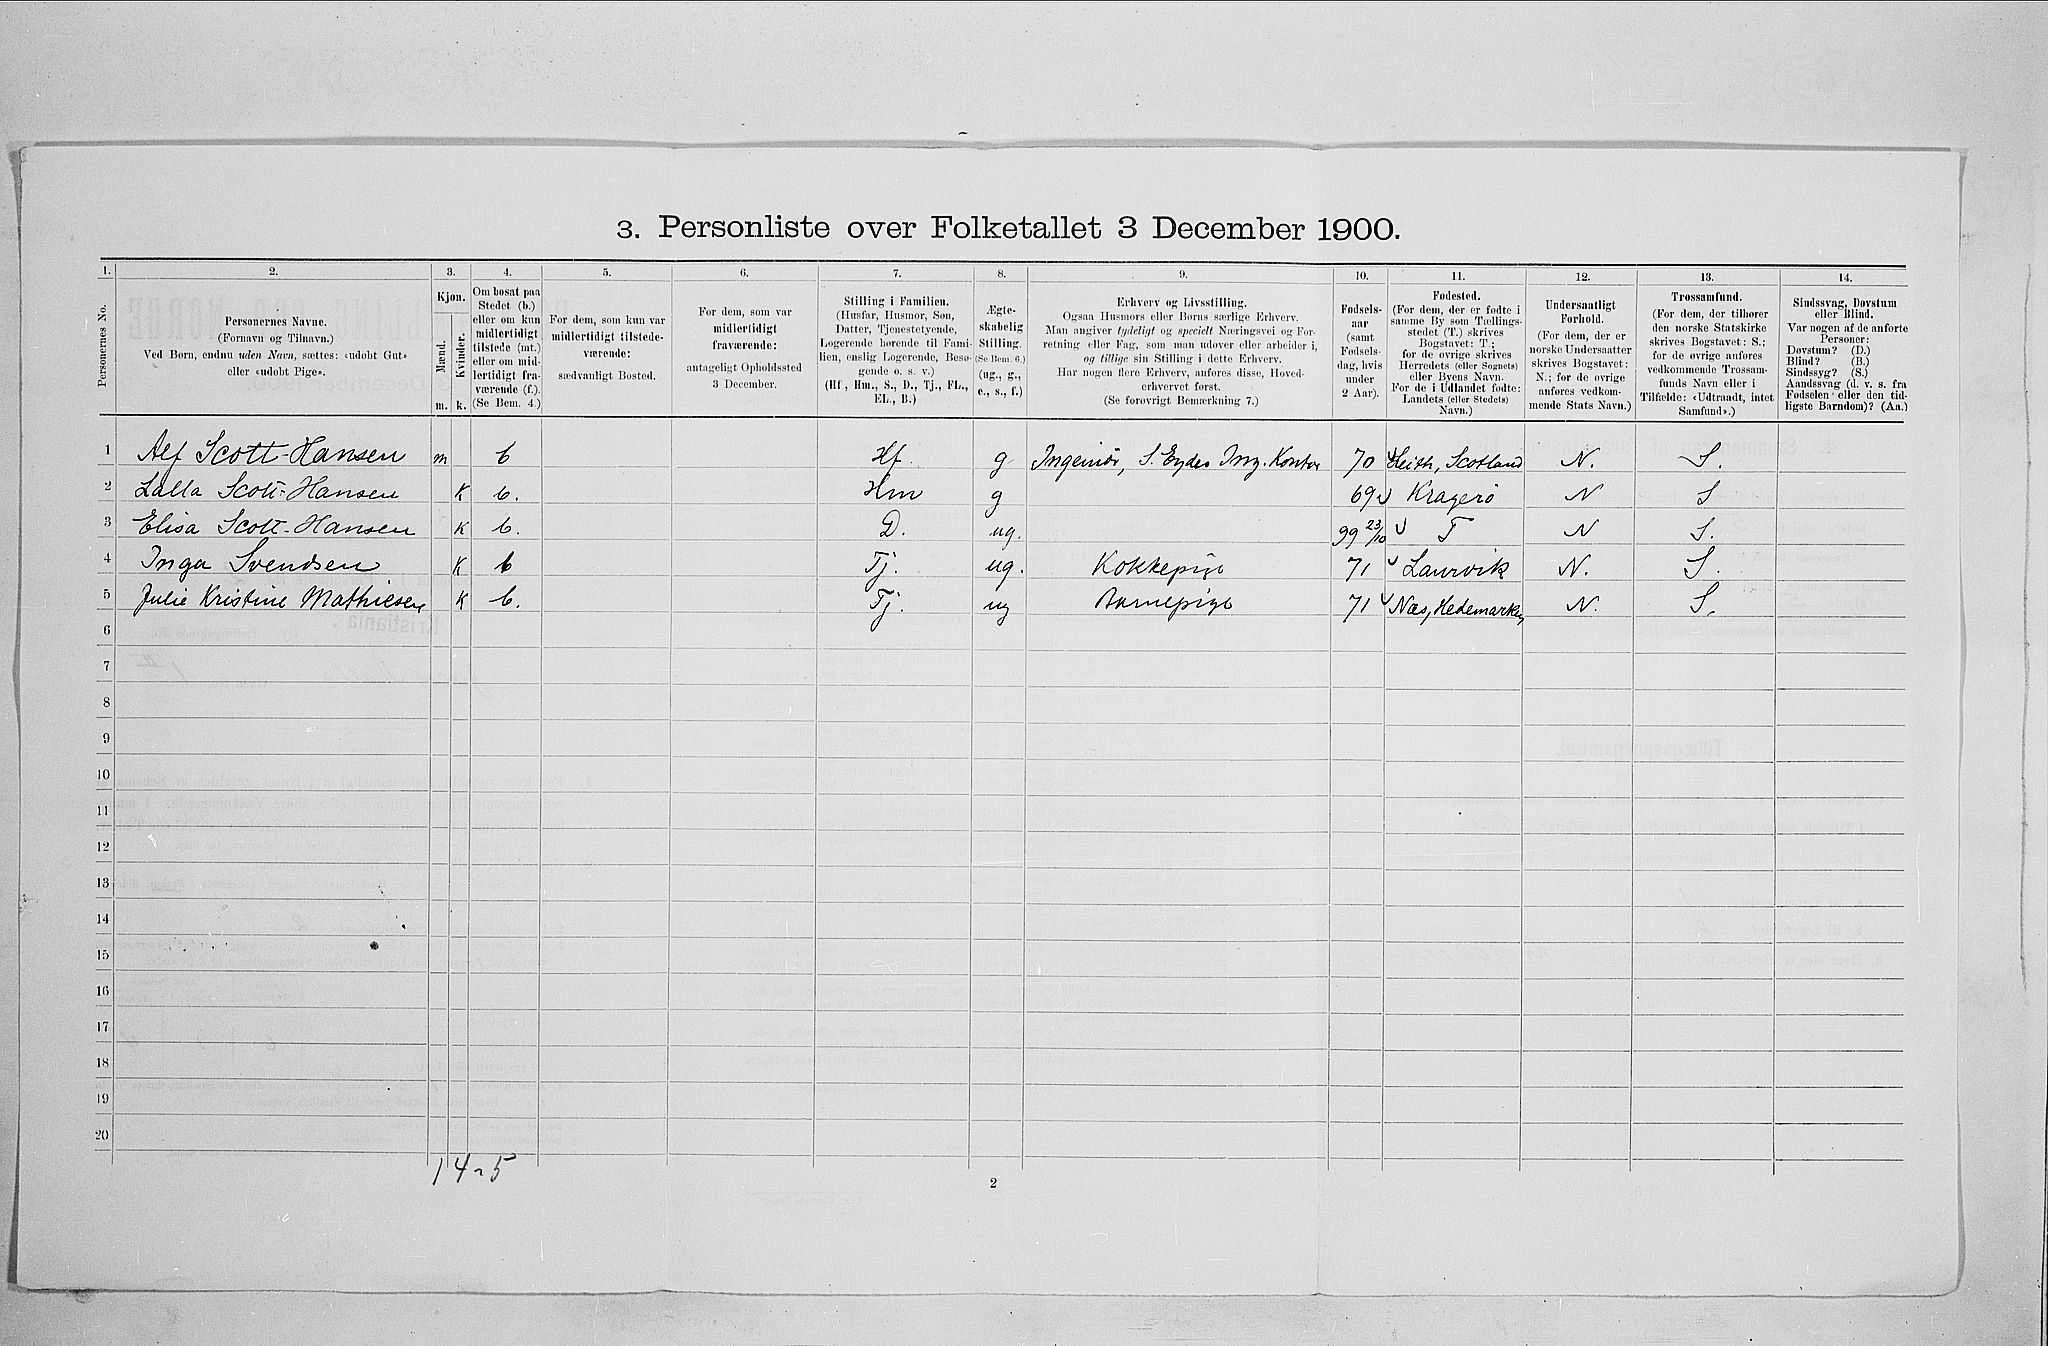 3. Personliste over Folketallet 3 December 1900.
1. 2. 3. 4. 5. 6. 7. 8. 9. 10. 11. 12. 13. 14.
Personernes No.
Personernes Navne.
(Fornavn og Tilnavn.)
Ved Børn, endnu uden Navn, sættes: «udøbt Gut»
eller «udøbt Pige».
Kjøn.
Mænd.
Kvinder.
m. k.
Om bosat paa
Stedet (b.)
eller om kun
midlertidigt
tilstede (mt.)
eller om mid-
lertidigt fra-
værende (f.).
(Se Bem. 4.)
For dem, som kun var
midlertidigt tilstede-
værende:
sædvanligt Bosted.
For dem, som var
midlertidigt
fraværende:
antageligt Opholdssted
3 December.
Stilling i Familien.
(Husfar, Husmor, Søn,
Datter, Tjenestetyende,
Logerende hørende til Fami-
lien, enslig Logerende, Besø-
gende o. s. v.)
(Hf, Hm., S., D., Tj., FL.,
EL., B.)
Ægte-
skabelig
Stilling.
(Se Bem. 6.)
(ug., g.,
e., s., f.)
Erhverv og Livsstilling.
Ogsaa Husmors eller Børns særlige Erhverv.
Man angiver tydeligt og specielt Næringsvei og For-
retning eller Fag, som man udøver eller arbeider i,
og tillige sin Stilling i dette Erhverv.
Har nogen flere Erhverv, anføres disse, Hoved-
erhvervet først.
(Se forøvrigt Bemærkning 7.)
Fødsels-
aar
(samt
Fødsels-
dag, hvis
under
2 Aar).
Fødested.
(For dem, der er fødte i
samme By som Tællings-
stedet (T.) skrives
Bogstavet: T.;
for de øvrige skrives
Herredets (eller Sognets)
eller Byens Navn.
For de i Udlandet fødte:
Landets (eller Stedets)
Navn.)
Undersaatligt
Forhold.
(For dem, der er
norske Undersaatter
skrives Bogstavet:
N.; for de øvrige
anføres vedkom-
mende Stats Navn.)
Trossamfund.
(For dem, der tilhører
den norske Statskirke
skrives Bogstavet: S.;
for de øvrige anføres
vedkommende Trossam-
funds Navn eller i
Tilfælde: «Udtraadt, intet
Samfund».)
Sindssvag, Døvstum
eller Blind.
Var nogen af de anførte
Personer:
Døvstum? (D.)
Blind? (B.)
Sindssyg? (S.)
Aandssvag (d. v. s. fra
Fødselen eller den tid-
ligste Barndom)? (Aa.)
1 Alf Scott-Hansen m b Hf. g Ingeniør, S. Eydes Ing. Kontor 70 Leith, Scotland N. S.
2 Lalla Scott-Hansen K b. Hm g 69 Kragerø N S
3 Elisa Scott-Hansen K b. D. ug. 99 23/10 T N S.
4 Inga Svendsen K b Tj. ug. Kokkepige 71 Laurvik N. S.
5 Julie Kristine Mathiesen K b. Tj. ug Barnepige 71 Næs, Hedemarken N. S.
6
7
8
9
10
11
12
13
14
15
16
17
18
19
20
1 4 - 5
2